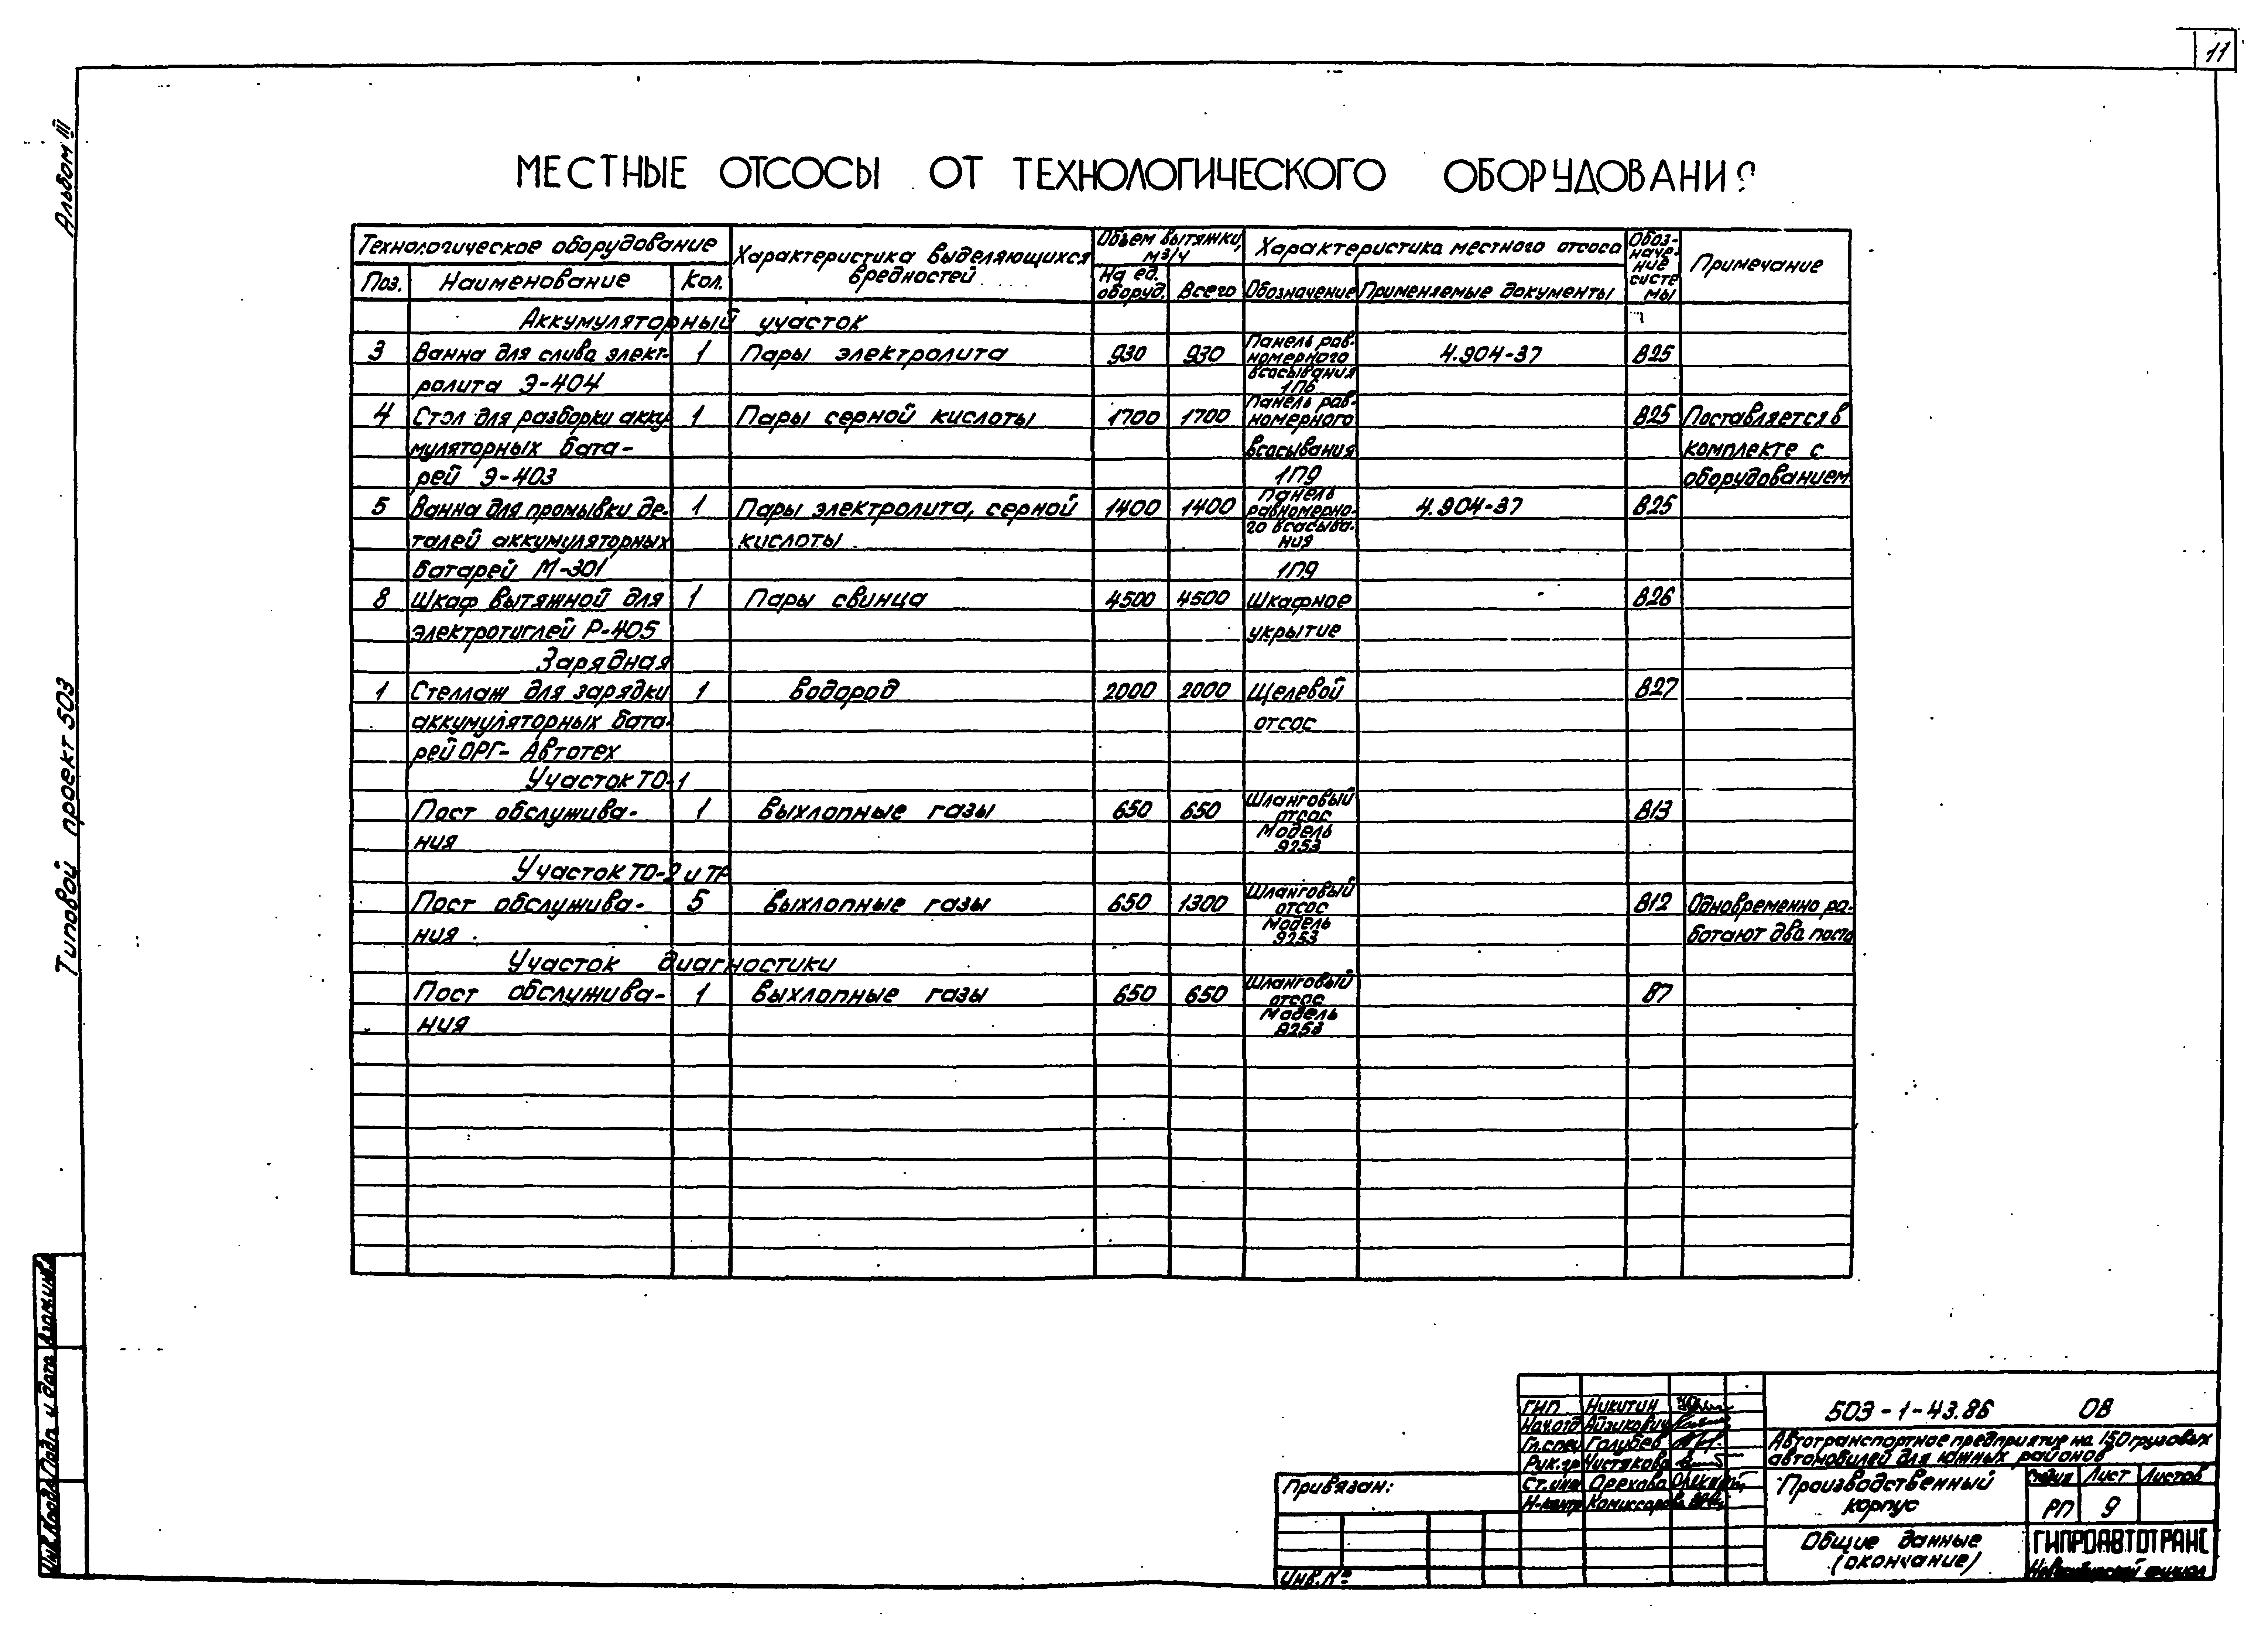 11
Альбом III
Типовой проект 503
МЕСТНЫЕ ОТСОСЫ ОТ ТЕХНОЛОГИЧЕСКОГО ОБОРУДОВАНИЯ
Технологическое оборудование
Характеристика выделяющихся
вредностей
Объем вытяжки,
м3/ч
Характеристика местного отсоса
Обоз-
наче-
ние
систе
мы
Примечание
Поз.
Наименование
Кол.
На ед.
оборуд.
Всего
Обозначение
Применяемые документы
Аккумуляторный участок
3 Ванна для слива элект- 1 Пары электролита 930 930 Панель рав- 4.904-37 В25
номерного
ролита Э-404 всасывания
1П6
4 Стол для разборки акку 1 Пары серной кислоты 1700 1700 Панель рав- В25 Поставляется в
номерного
муляторных бата- всасывания комплекте с
рей Э-403 1П9 оборудованием
5 Ванна для промывки де- 1 Пары электролита, серной 1400 1400 Панель 4.904-37 В25
равномерно-
талей аккумуляторных кислоты го всасыва-
ния
батарей М-301 1П9
8 Шкаф вытяжной для 1 Пары свинца 4500 4500 Шкафное В26
электротиглей Р-405 укрытие
Зарядная
1 Стеллаж для зарядки 1 водород 2000 2000 Щелевой В27
аккумуляторных бата- отсос
рей ОРГ- Автотех
Участок ТО-1
Пост обслужива- 1 Выхлопные газы 650 650 Шланговый В13
отсос
ния Модель
9253
Участок ТО-2 и ТР
Пост обслужива- 5 выхлопные газы 650 1300 Шланговый В12 Одновременно ра-
отсос
ния Модель ботают два поста
9253
Участок диагностики
Пост обслужива- 1 Выхлопные газы 650 650 Шланговый В7
отсос
ния Модель
9253
Взам.инв.
Подп и дата
Инв.№подл
ГИП Никитин
Нач.отд Айзикович
Гл.спец Голубев
Рук.гр Чистякова
Ст.инж Орехова
Н-контр Комиссарова
503-1-43.86 ОВ
Автотранспортное предприятие на 150 грузовых
автомобилей для южных районов
Производственный
корпус
Стадия Лист Листов
РП 9
Общие данные
(окончание)
ГИПРОАВТОТРАНС
Новосибирский филиал
Привязан:
Инв.№